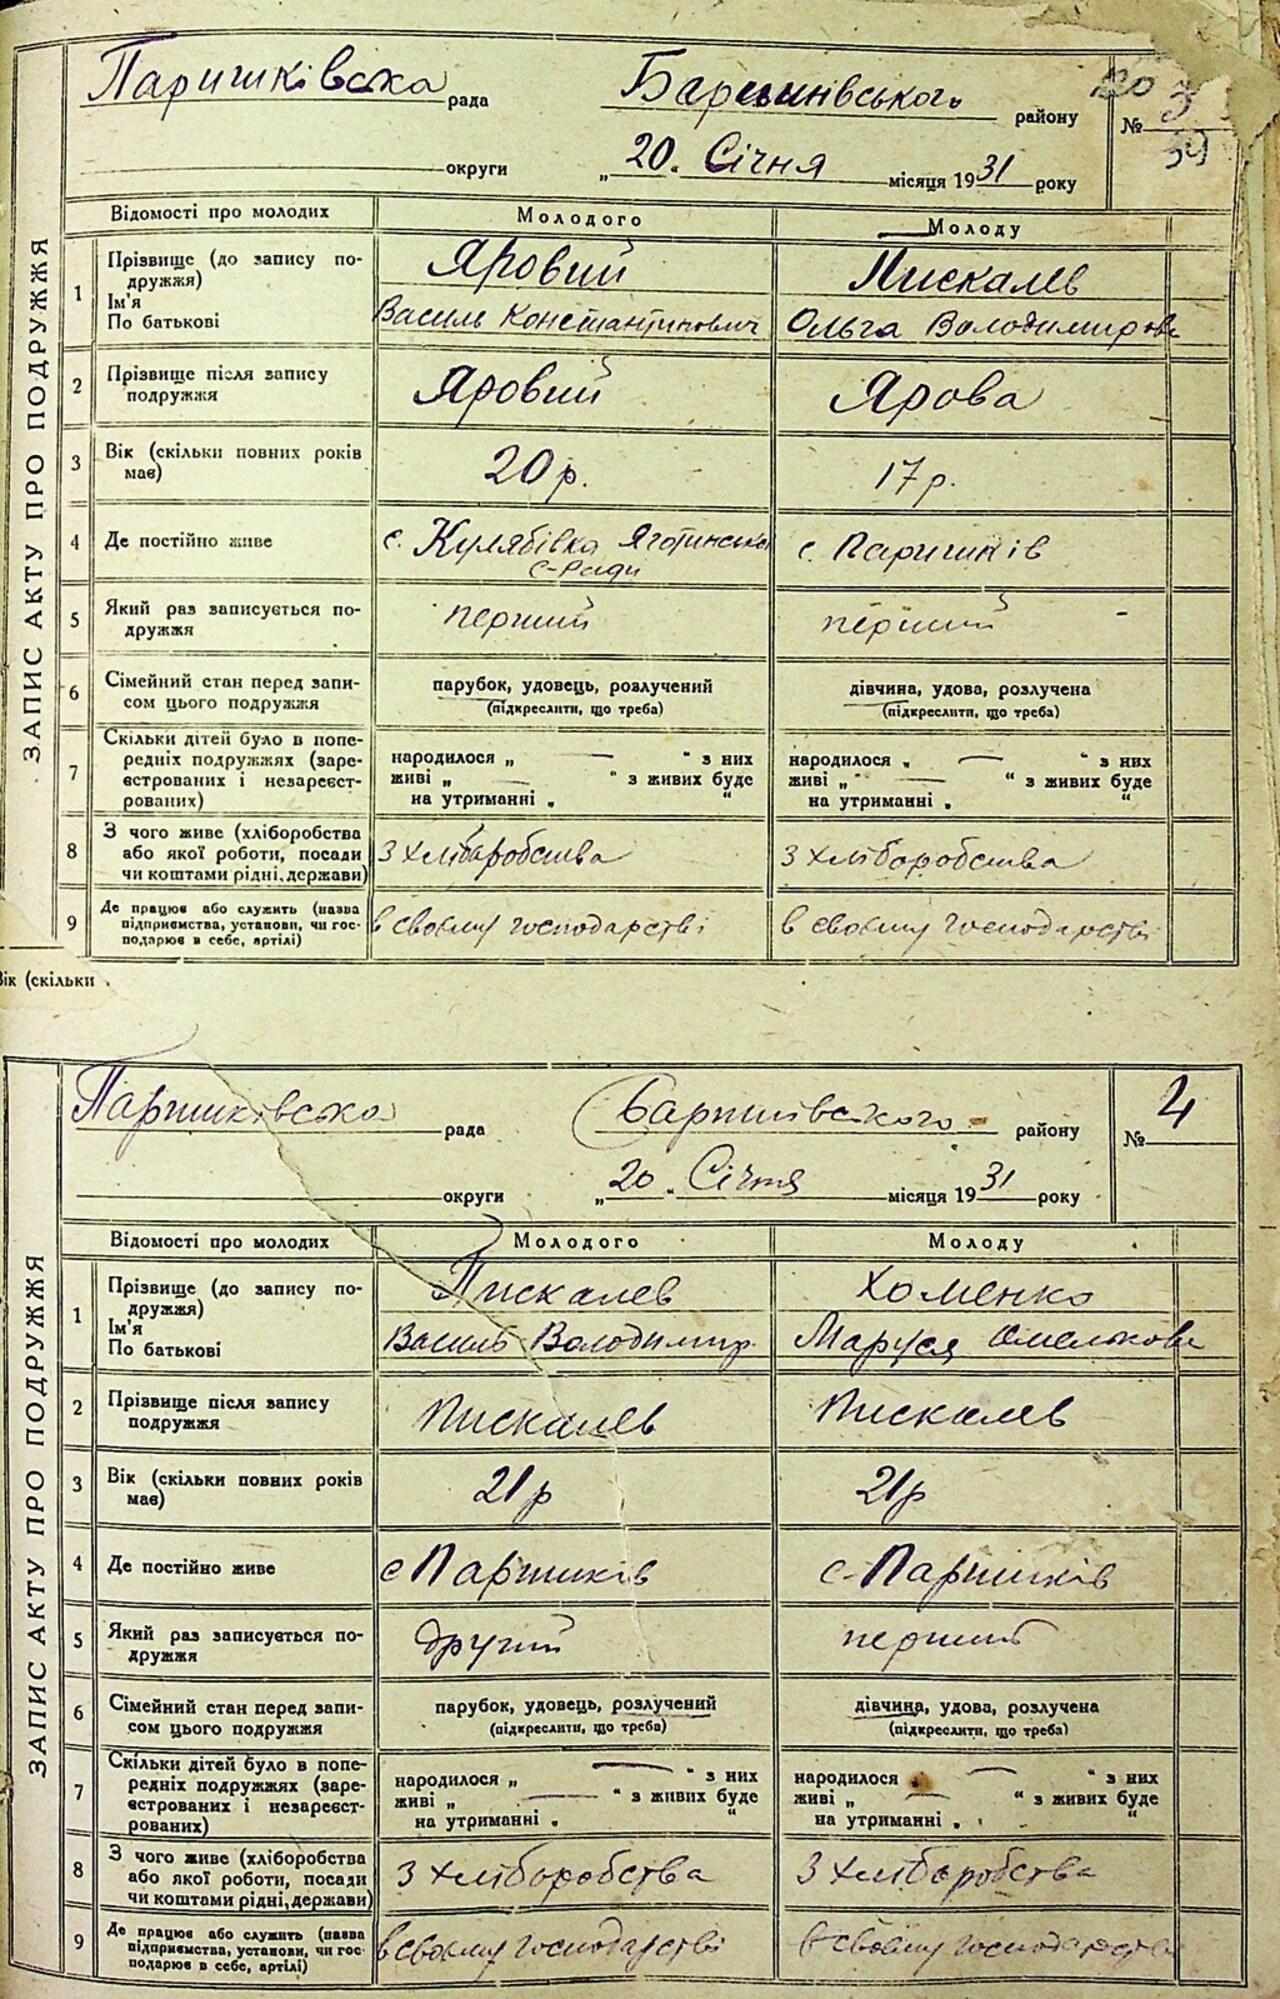 Паришківська рада Баришівського району № 3
20
39
округи „20„ Січня місяця 1931 року
ЗАПИС АКТУ ПРО ПОДРУЖЖЯ
Відомості про молодих Молодого Молоду
1 Прізвище (до запису по- Яровий Пискалев
дружжя)
Ім'я Василь Константинович Ольга Володимиров
По батькові
2 Прізвище після запису Яровий Ярова
подружжя
3 Вік (скільки повних років 20 р. 17 р.
має)
4 Де постійно живе с. Кулябівка Яготинська с. Паришків
с-ради
5 Який раз записується по- перший перший -
дружжя
6 Сімейний стан перед запи- парубок, удовець, розлучений дівчина, удова, розлучена
сом цього подружжя (підкреслити, що треба) (підкреслити, що треба)
7 Скільки дітей було в попе-
редніх подружжях (заре- народилося „ — “ з них народилося „ — “ з них
єстрованих і незареєст- живі „ — “ з живих буде живі „ — “ з живих буде
рованих) на утриманні „ “ на утриманні „ “
8 З чого живе (хліборобства
або якої роботи, посади З хліборобства З хліборобства
чи коштами рідні, держави)
9 Де працює або служить (назва
підприємства, установи, чи гос- в своєму господарстві в своєму господарстві
подарює в себе, артілі)
Вік (скільки
Паришківська рада Баришівського району № 4
округи „20„ Січня місяця 1931 року
ЗАПИС АКТУ ПРО ПОДРУЖЖЯ
Відомості про молодих Молодого Молоду
1 Прізвище (до запису по- Пискалев Хоменко
дружжя)
Ім'я Василь Володимир. Маруся Омелькове
По батькові
2 Прізвище після запису Пискалев Пискалев
подружжя
3 Вік (скільки повних років 21 р 21 р
має)
4 Де постійно живе с Паришків с-Паришків
5 Який раз записується по- другий перший
дружжя
6 Сімейний стан перед запи- парубок, удовець, розлучений дівчина, удова, розлучена
сом цього подружжя (підкреслити, що треба) (підкреслити, що треба)
7 Скільки дітей було в попе-
редніх подружжях (заре- народилося „ — “ з них народилося „ — “ з них
єстрованих і незареєст- живі „ — “ з живих буде живі „ — “ з живих буде
рованих) на утриманні „ “ на утриманні „ “
8 З чого живе (хліборобства
або якої роботи, посади З хліборобства З хліборобства
чи коштами рідні, держави)
9 Де працює або служить (назва
підприємства, установи, чи гос- в своєму господарстві в своєму господарстві
подарює в себе, артілі)